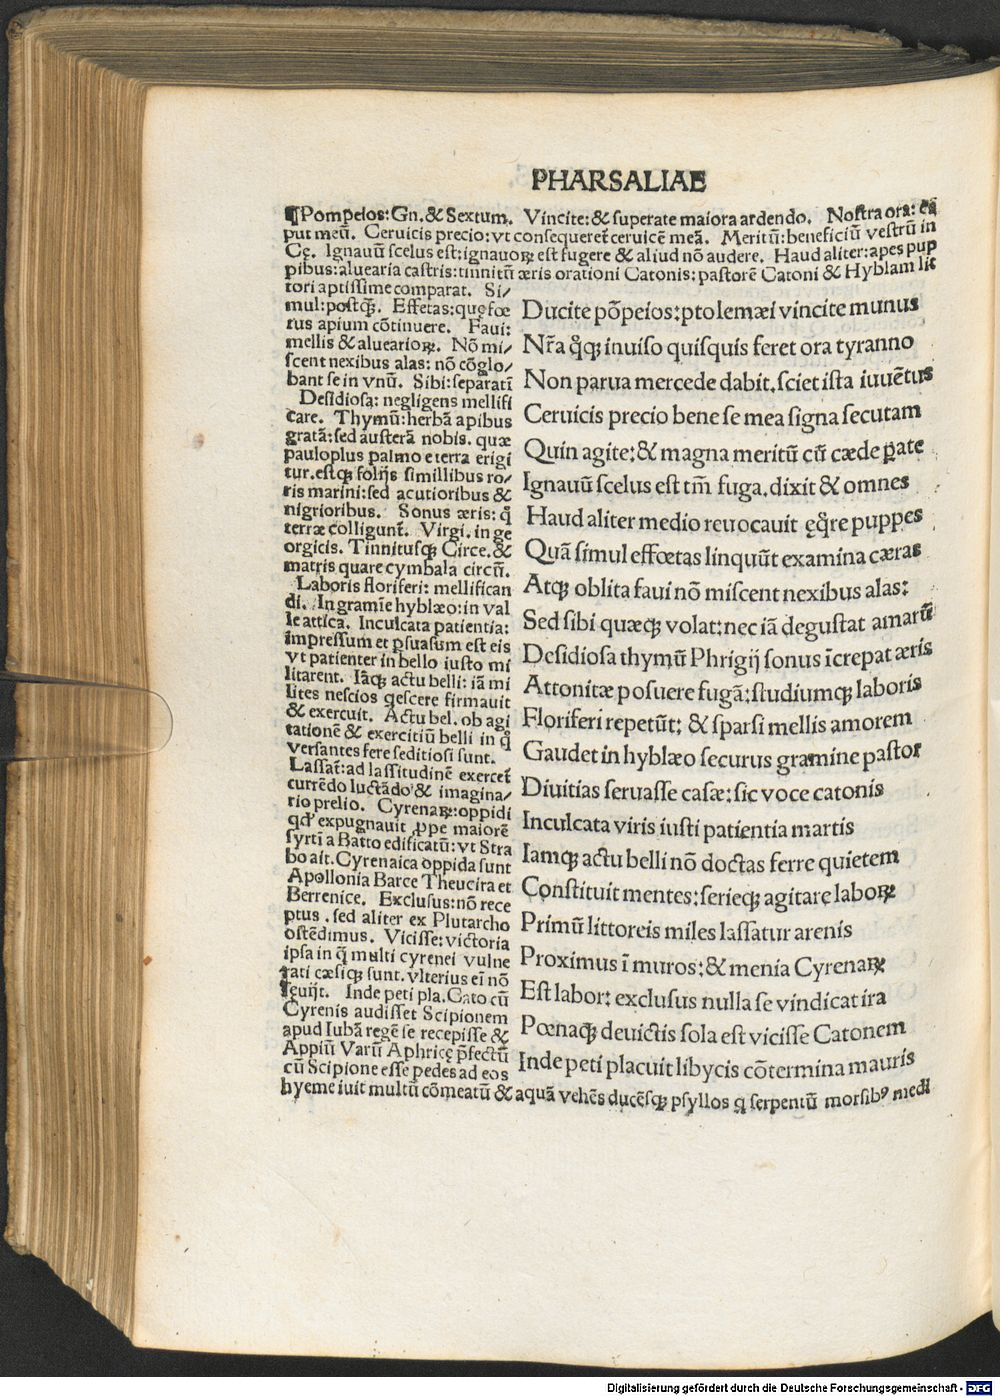 PHARSALIAE
¶Pompeios: Gn. & Sextum. Vincite: & superate maiora ardendo. Nostra ora: cā
put meū. Ceruicis precio: vt consequeret᷑ ceruicē meā. Meritū: beneficiū vestrū in
Cę. Ignauū scelus est: ignauoꝝ est fugere & aliud nō audere. Haud aliter: apes pup
pibus: aluearia castris: tinnitū æris orationi Catonis: pastorē Catoni & Hyblam lit
tori aptissime comparat. Si/
mul: postꝙ. Effetas: quę fœ
tus apium cōtinuere. Faui:
mellis & aluearioꝝ. Nō mi/
scent nexibus alas: nō cōglo/
bant se in vnū. Sibi: separati
Desidiosa: negligens mellifi
care. Thymū: herbā apibus
gratā: sed austerā nobis. quæ
pauloplus palmo e terra erigi
tur. estqꝫ folijs simillibus ro/
ris marini: sed acutioribus &
nigrioribus. Sonus æris: q̊
terræ colligunt᷑. Virgi. in ge
orgicis. Tinnitusqꝫ Circe. &
matris quare cymbala circū.
Laboris floriferi: mellifican
di. In gramīe hyblæo: in val
le attica. Inculcata patientia:
impressum et ꝑsuasum est eis
vt patienter in bello iusto mi
litarent. Iāqꝫ actu belli: iā mi
lites nescios qescere firmauit
& exercuit. Actu bel. ob agi
tationē & exercitiū belli in q̊
versantes fere seditiosi sunt.
Lassat᷑: ad lassitudinē exercet᷑
currēdo luctādo & imagina/
rio prelio. Cyrenaꝝ: oppidi
qđ expugnauit ꝓpe maiorē
syrti a Batto edificatū: vt Stra
bo ait. Cyrenaica oppida sunt
Apollonia Barce Theucira et
Berrenice. Exclusus: nō rece
ptus. sed aliter ex Plutarcho
ostēdimus. Vicisse: victoria
ipsa in q̄ multi cyrenei vulne
rati cæsiqꝫ sunt. vlterius ei nō
seuijt. Inde peti pla. Cato cū
Cyrenis audisset Scipionem
apud Iubā regē se recepisse &
Appiū Varū Aphricę p̄fectū
cū Scipione esse pedes ad eos
hyeme iuit multū cōmeatū & aquā vehēs ducēsqꝫ psyllos q serpentū morsibꝰ medi
Ducite pōpeios: ptolemæi vincite munus
Nr̄a q̊qꝫ inuiso quisquis feret ora tyranno
Non parua mercede dabit. sciet ista iuuētus
Ceruicis precio bene se mea signa secutam
Quin agite: & magna meritū cū cæde ꝑate
Ignauū scelus est tm̄ fuga. dixit & omnes
Haud aliter medio reuocauit ęq̊re puppes
Quā simul effœtas linquūt examina cæras
Atqꝫ oblita faui nō miscent nexibus alas:
Sed sibi quæqꝫ volat: nec iā degustat amarū
Desidiosa thymū Phrigij sonus īcrepat æris
Attonitæ posuere fugā: studiumqꝫ laboris
Floriferi repetūt: & sparsi mellis amorem
Gaudet in hyblæo securus gramine pastor
Diuitias seruasse casæ: sic voce catonis
Inculcata viris iusti patientia martis
Iamqꝫ actu belli nō doctas ferre quietem
Constituit mentes: serieqꝫ agitare laboꝝ
Primū littoreis miles lassatur arenis
Proximus ī muros: & menia Cyrenaꝝ
Est labor: exclusus nulla se vindicat ira
Pœnaqꝫ deuictis sola est vicisse Catonem
Inde peti placuit libycis cōtermina mauris
Digitalisierung gefördert durch die Deutsche Forschungsgemeinschaft - DFG